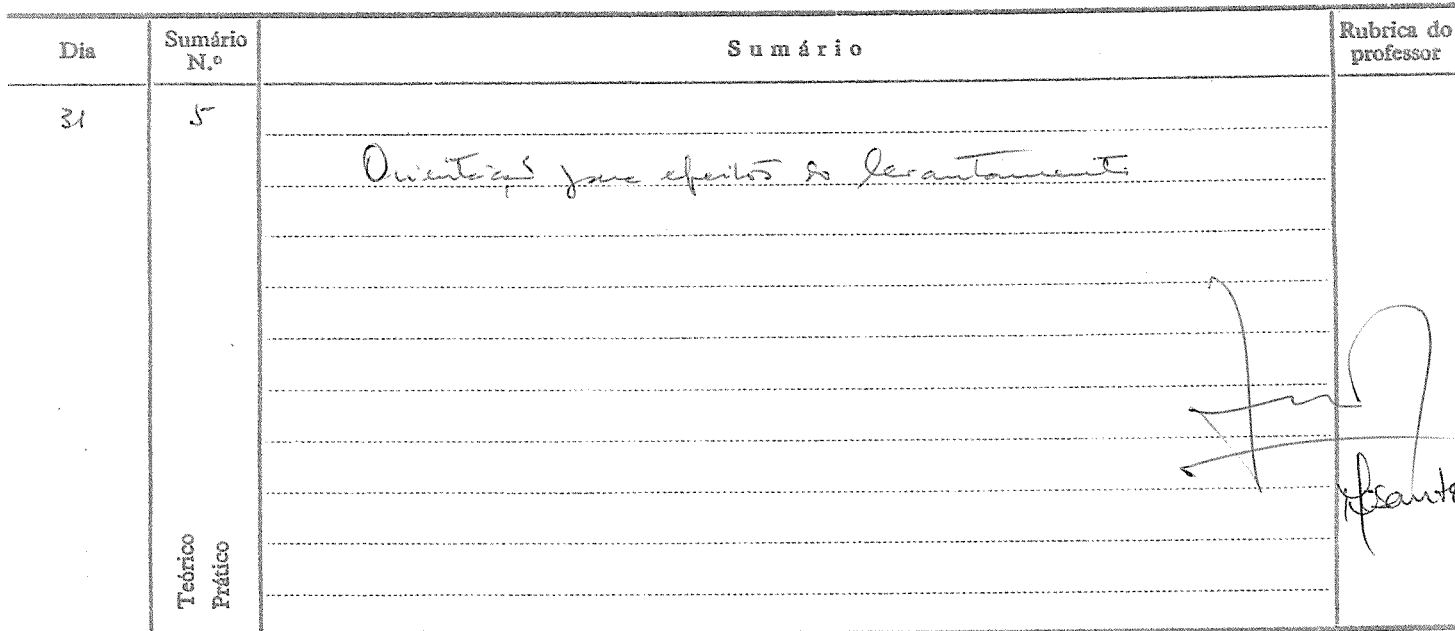 Dia Sumário N.º Sumário Rubrica do professor
31 5
Orientação para efeitos do levantamento
Teórico
Prático